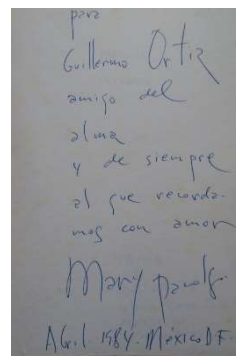 para
Guillermo Ortiz
amigo del
alma
y de siempre
al que recorda-
mos con amor
Mary
Abril 1984. México D.F.